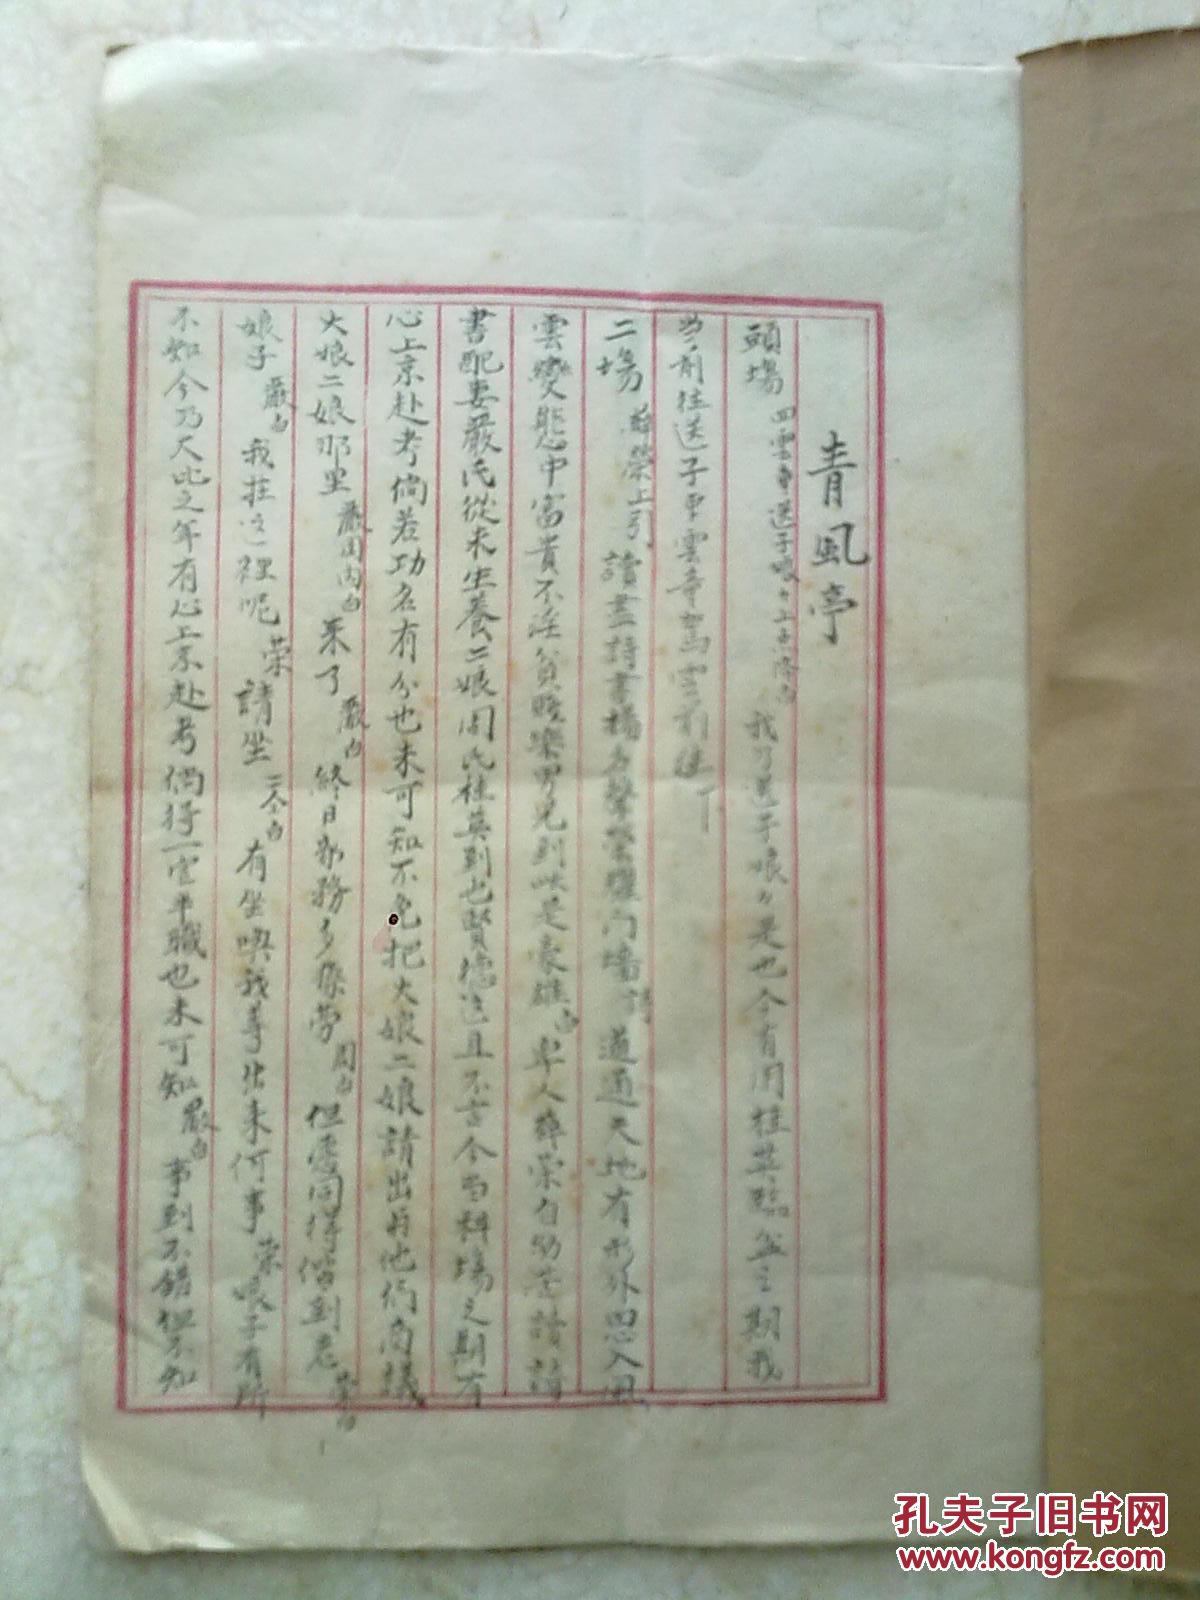 青風亭
頭場 四雲童送子娘々上 白 我乃送子娘々是也今有周桂英臨盆之期我
當前往送子 雲童駕雲前往下
二場 薛榮上引 讀盡詩書揚名聲榮耀門墻 詩 道通天地有形外思入風
雲變態中富貴不淫貧賤樂男兒到此是豪雄 白 卑人薛榮自幼苦讀詩
書配妻嚴氏從未生養二娘周氏桂英到也賢德這且不言今當科場之期有
心上京赴考倘若功名有分也未可知不免把大娘二娘請出與他們商議
大娘二娘那里 嚴周内白 来了 嚴白 終日家務多操勞 周白 但愿同得偕到老 荣白
娘子 嚴白 我在这裡呢 荣 請坐 二仝白 有坐唤我等出来何事 荣 娘子有所
不知今乃大比之年有心上京赴考倘得一官半職也未可知 嚴白 事到不錯但不知
孔夫子旧书网
www.kongfz.com